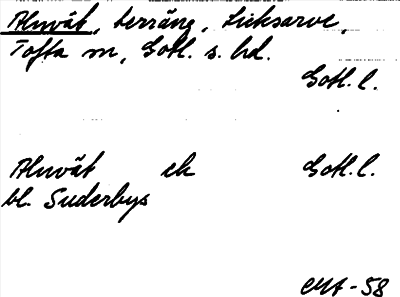 Alnvät, terräng, Licksarve,
Tofta sn, Gotl. s. hd.
Gotl. l.
Alnvät ek Gotl. l.
bl. Suderbys
CMA-58